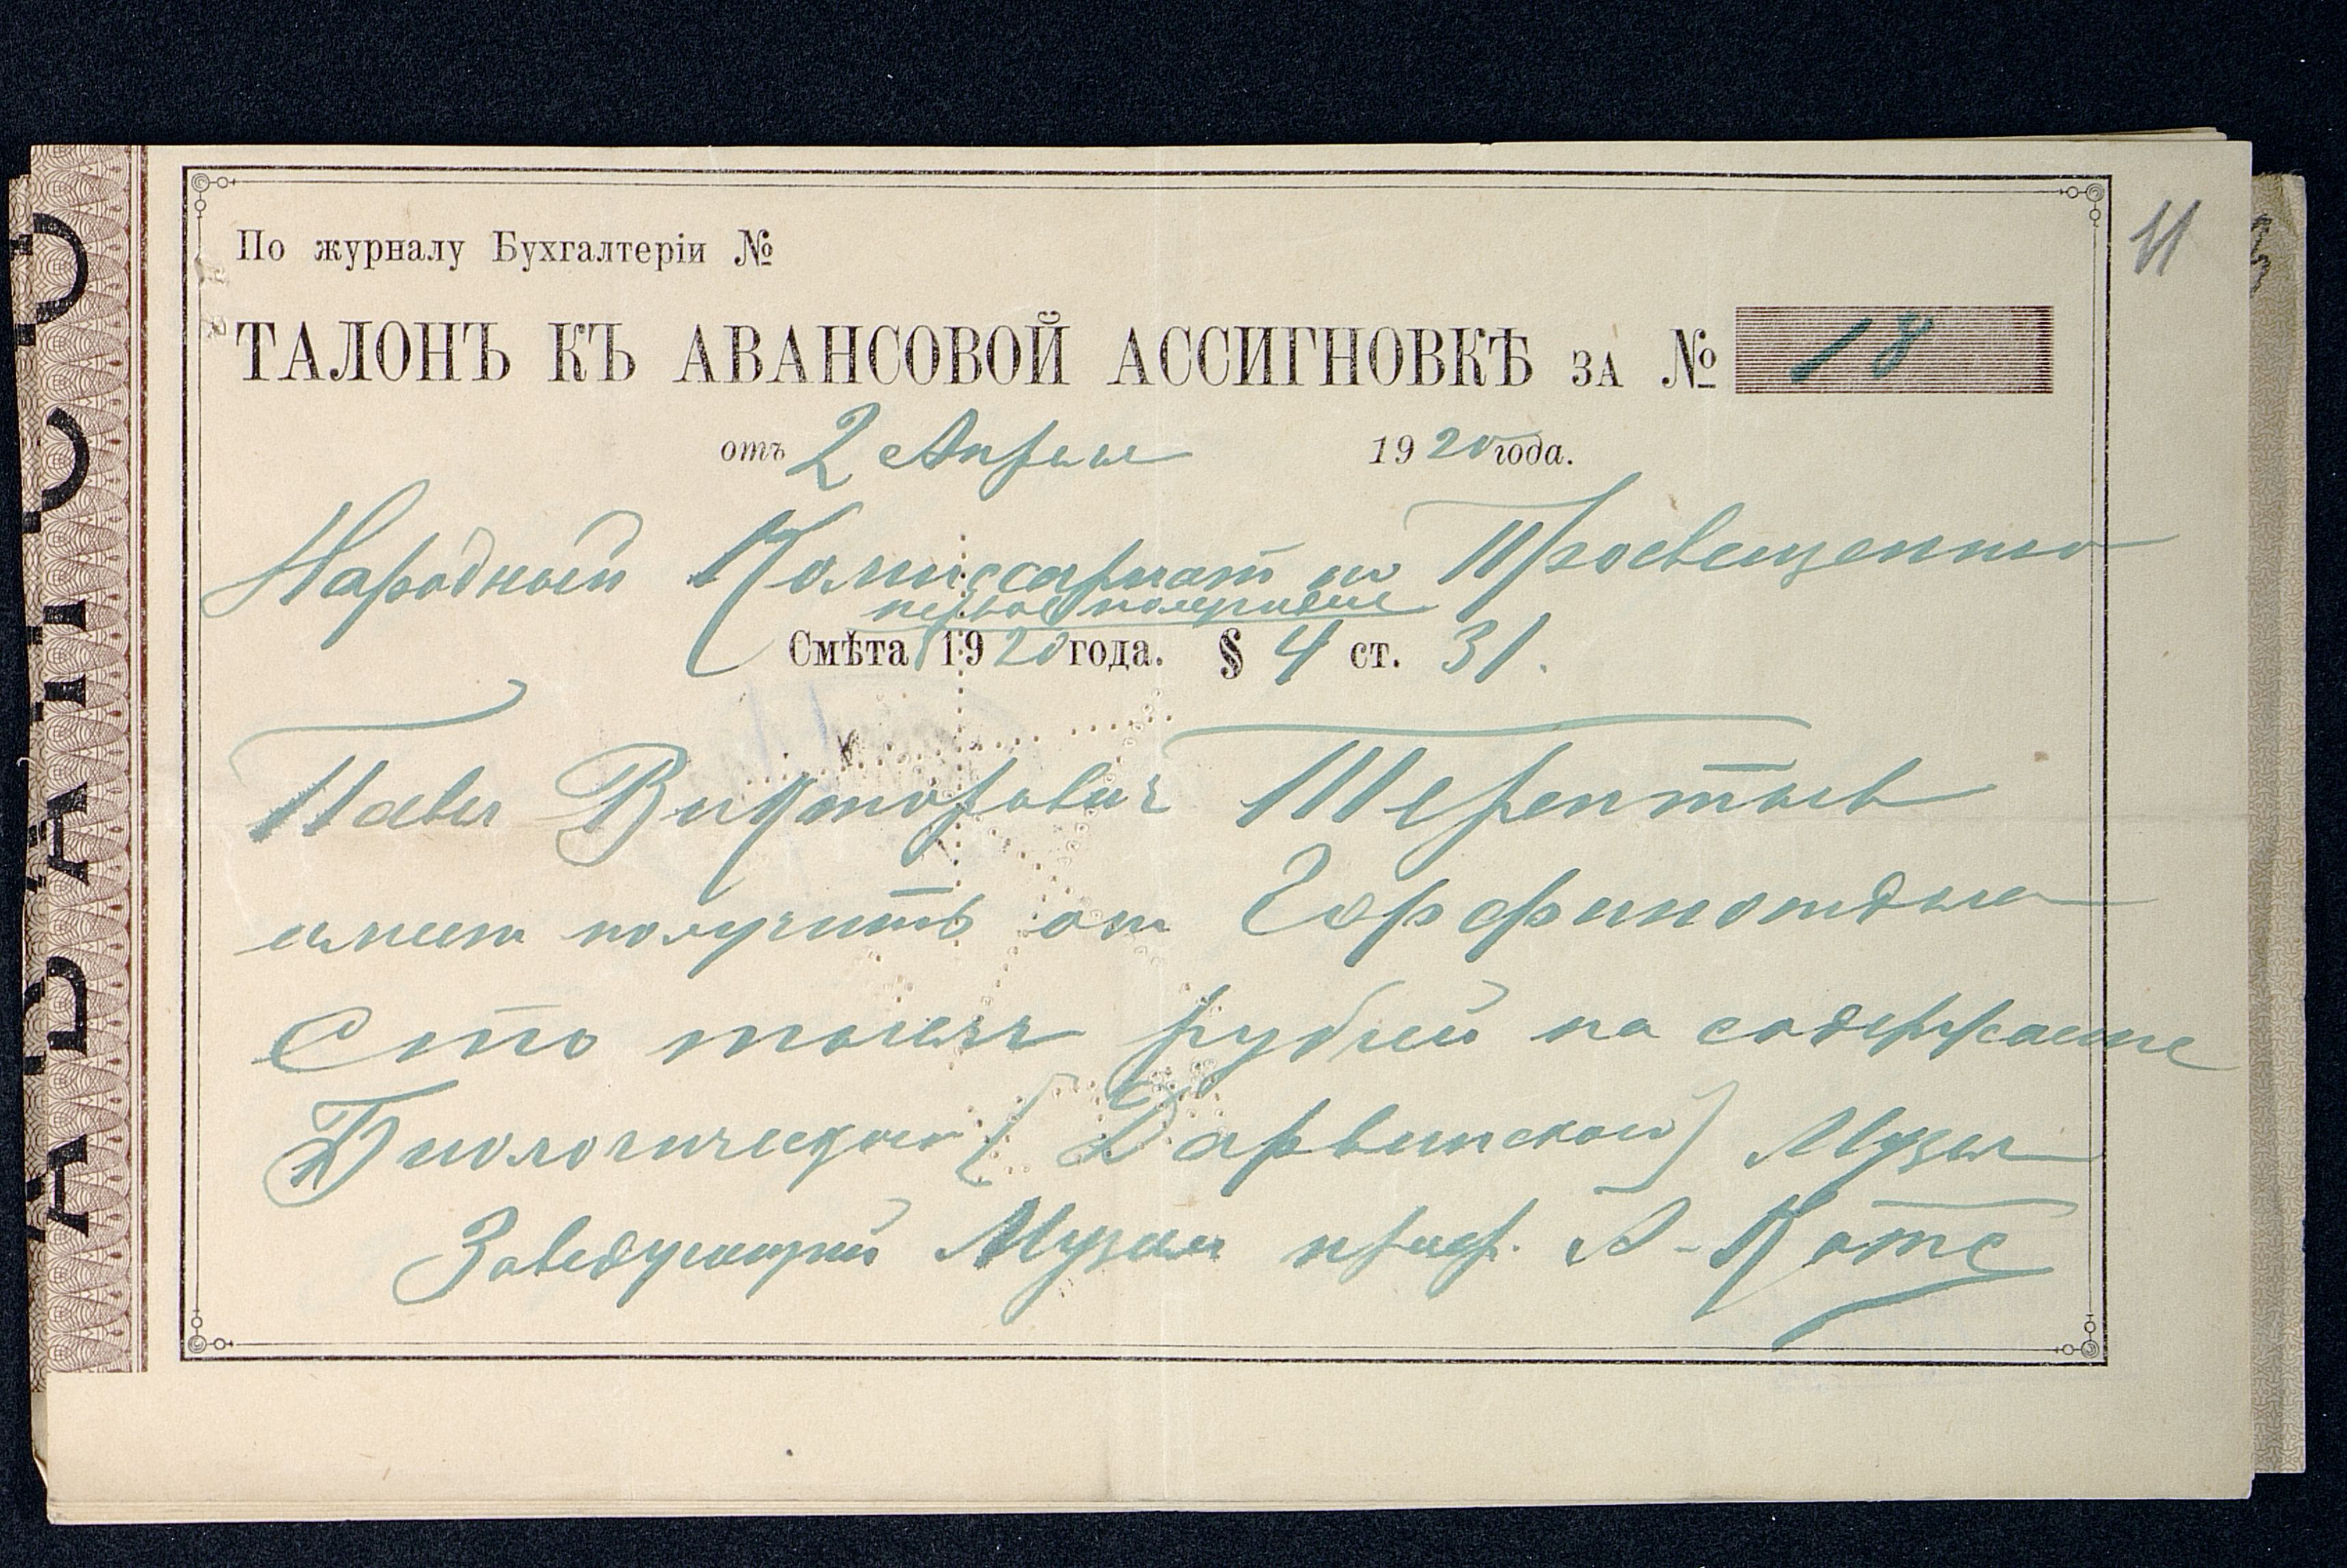 По журналу Бухгалтеріи №
11
ТАЛОНЪ КЪ АВАНСОВОЙ АССИГНОВКѢ ЗА № 18
отъ 2 Апреля 1920 года.
Народный Комиссариат по Просвещению
первое полугодие
Смѣта 1920 года. § 4 ст. 31.
Павел Викторович Терентьев
имеет получить от Горфинотдела
Сто тысяч рублей на содержание
Биологическаго (Дарвинскаго) Музея
Заведующий Музеем проф. А. Котс